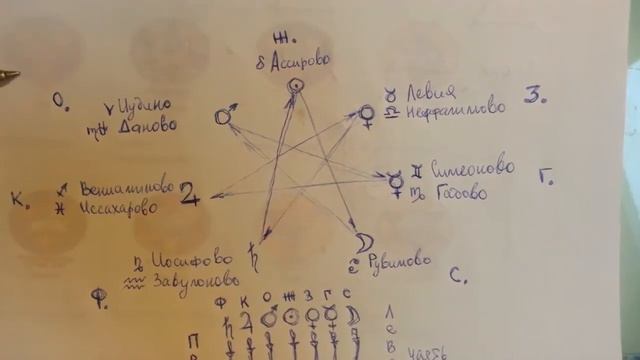 Ж.
δ Ассирово
☉
О.
♈ Иудино
♏ Даново
♂
♀
♉ Левия
♎ Неффалимово
З.
К.
♐ Вениаминово
♓ Иссахарово
♃
☿
♊ Симеоново
♍ Гадово
Г.
♑ Иосифово
♒ Завулоново
♄
☽
Рувимово
Ф.
С.
Ф К О Ж З Г С
♄ ♃ ♂ ☉ ♀ ☿ ☽
Л
П
С
В
часть